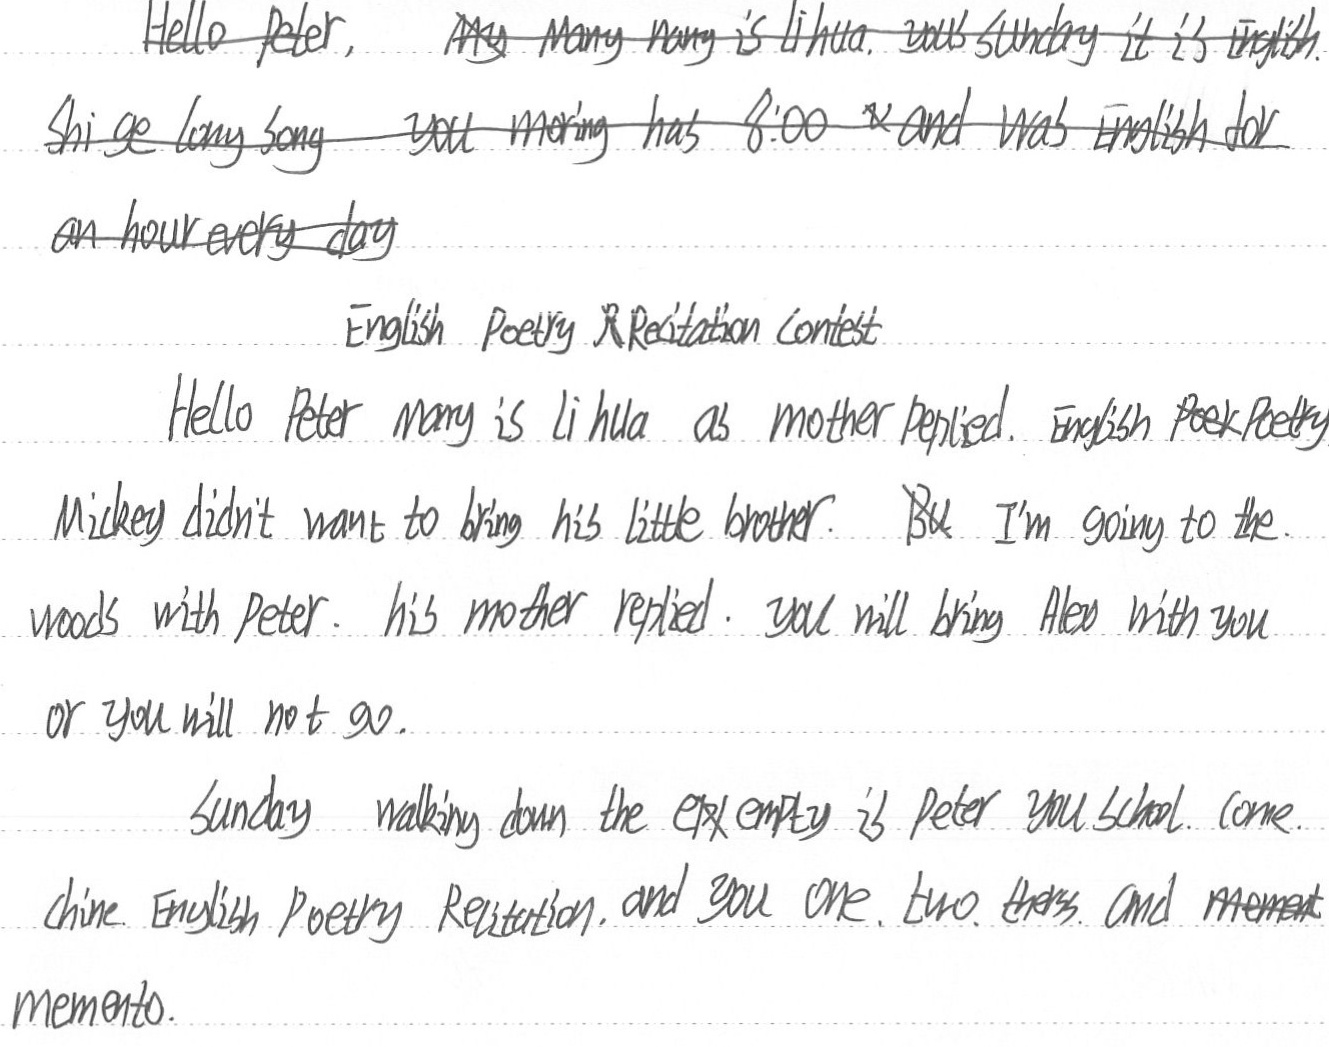 Hello Peter, My Many nany is li hua. your sunday it is English.
Shi ge lony song you moring has 8:00 and was English for
an hour every day
English Poetry Recitation Contest
Hello Peter nany is li hua as mother peplied. English Poek Poetry
Mickey didn't want to bring his little brother. Bu I'm going to the.
woods with Peter. his mother replied. you will bring Alex with you
or you will not go.
Sunday walking down the empty is Peter you school. come.
chine English Poetry Recitation. and you one. two. and moment
memento.